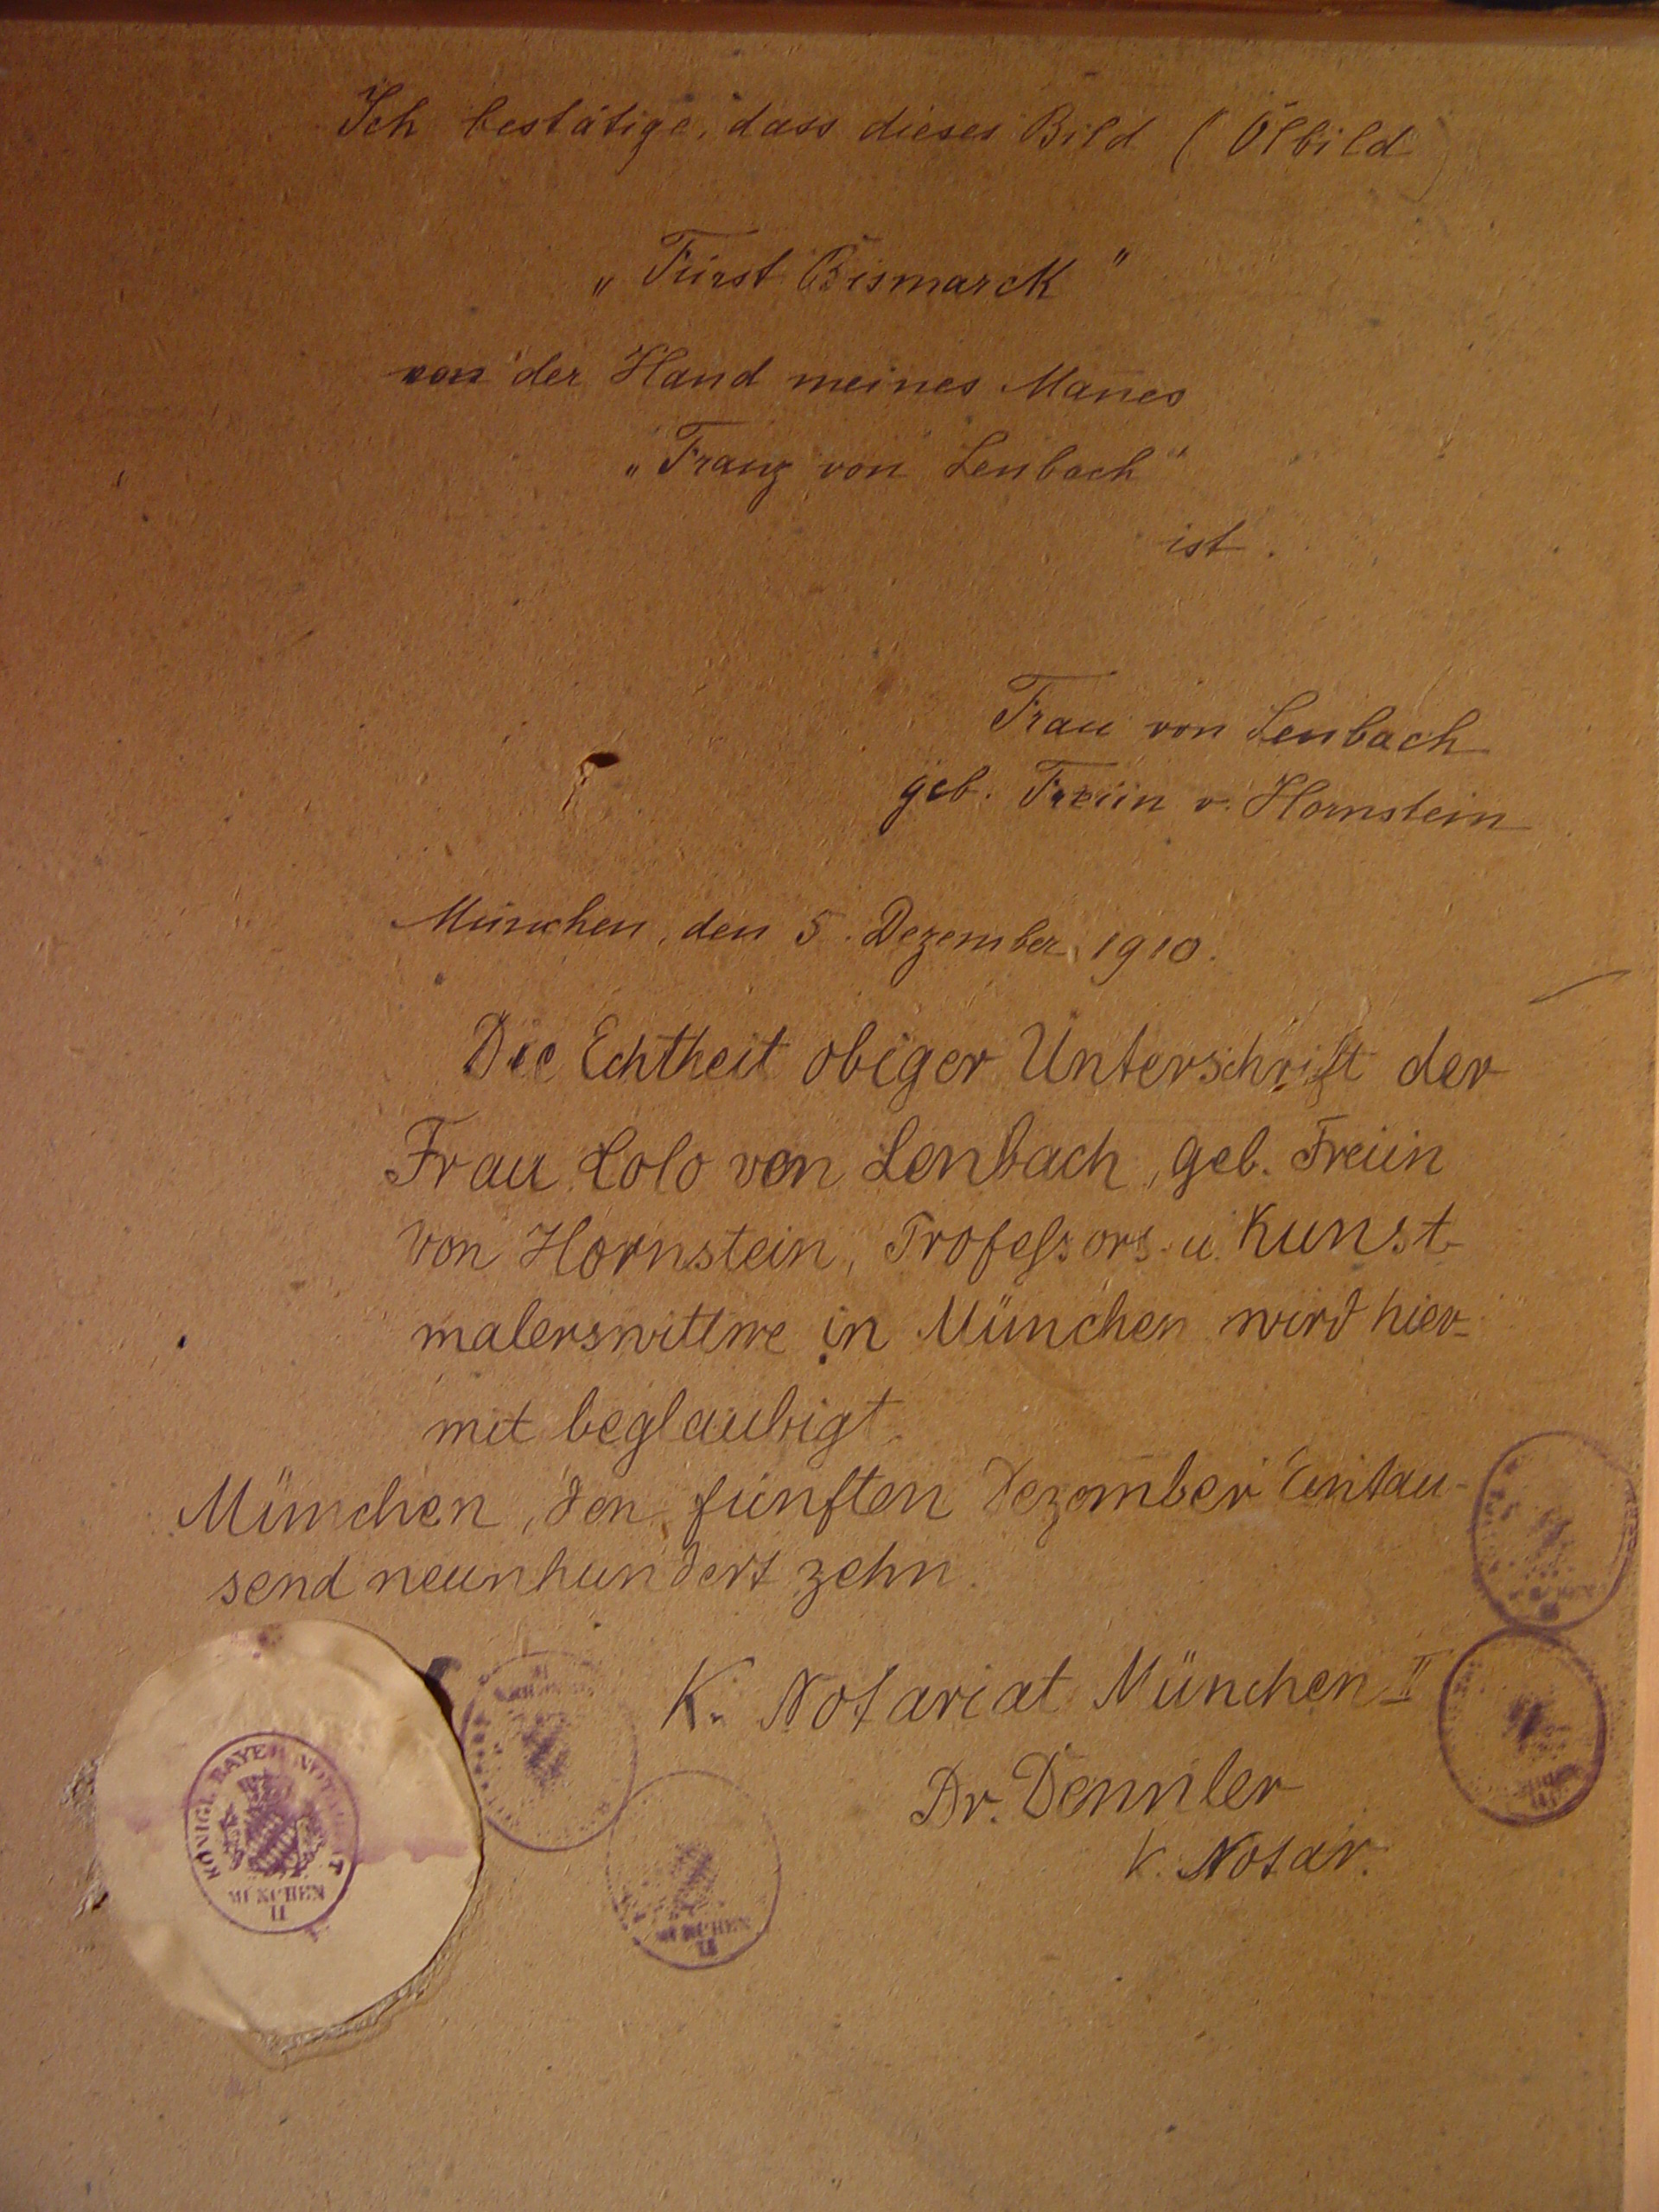 Ich bestätige, dass dieses Bild (Ölbild)
„Fürst Bismarck"
von der Hand meines Mañes
„Franz von Lenbach"
ist.
Frau von Lenbach
geb. Freiin v. Hornstein
München, den 5. Dezember 1910.
Die Echtheit obiger Unterschrift der
Frau Lolo von Lenbach, geb. Freiin
von Hornstein, Professors- u. Kunst-
malerswittwe in München wird hier-
mit beglaubigt.
München, den fünften Dezember Eintau-
send neunhundert zehn.
K. Notariat München II
Dr. Dennler
K. Notar.
KÖNIGL. BAYER. NOTARIAT
MÜNCHEN
II
MÜNCHEN
II